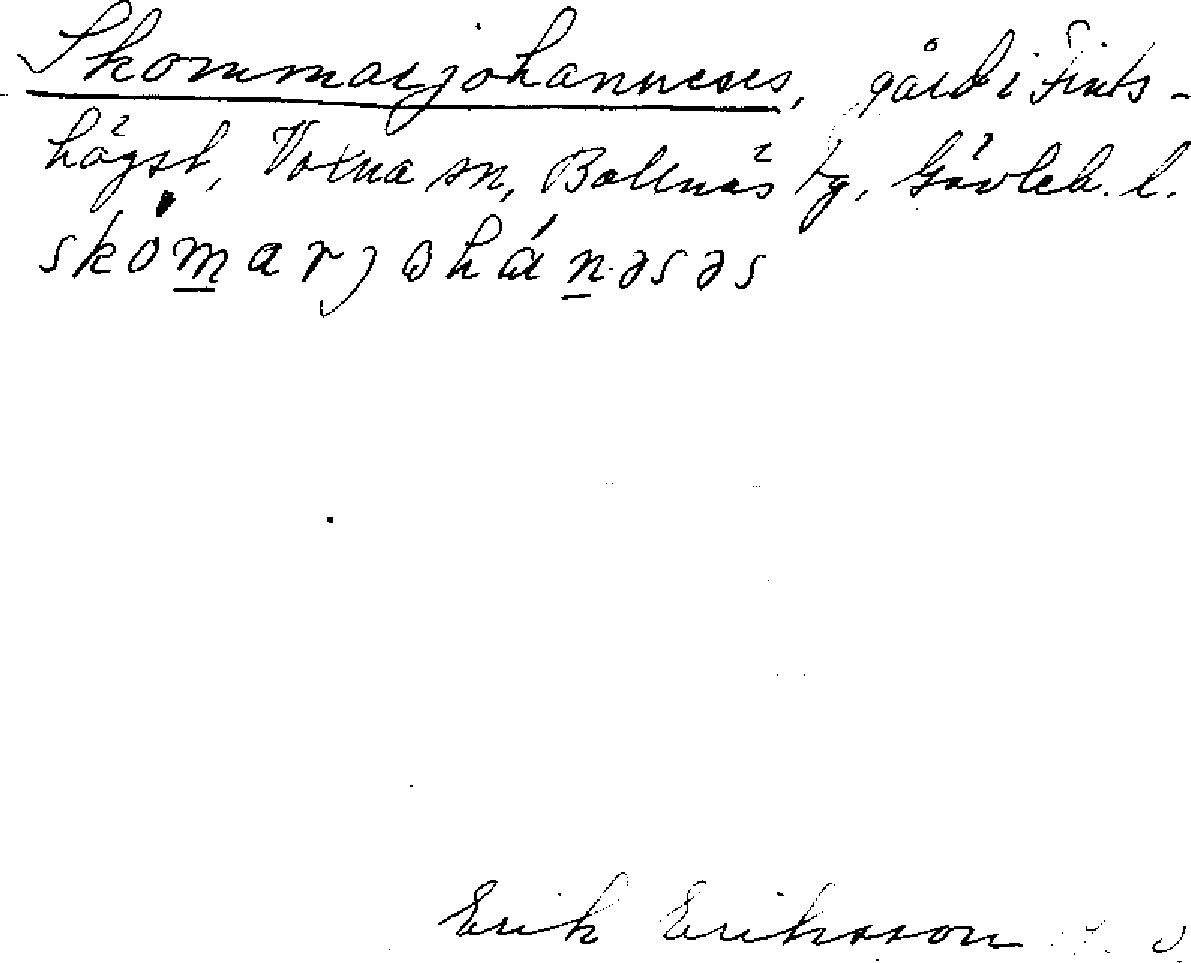 Skommarjohanneses, gård i Fints-
högst, Voxna sn, Bollnäs tg, Gävleb. l.
skómarjɷhánəsəs
Erik Eriksson